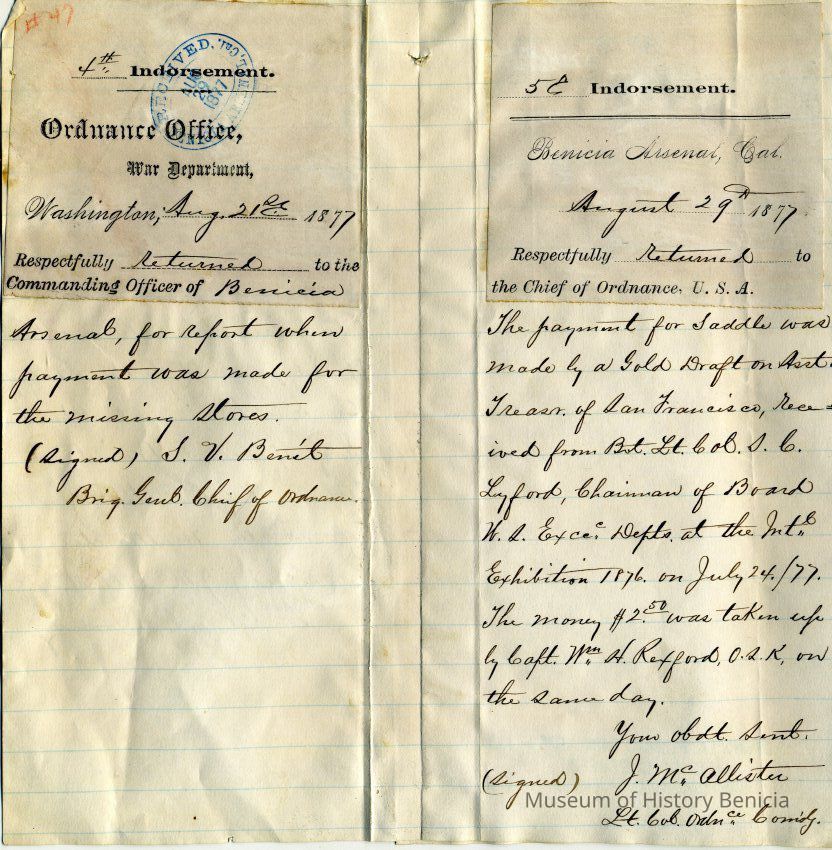 # 47
4th Indorsement.
RECEIVED,
AUG
29
1877
Ordnance Office,
War Department,
Washington, Aug. 21st 1877
Respectfully returned to the
Commanding Officer of Benicia
Arsenal, for report when
payment was made for
the missing stores.
(signed) S. V. Benét
Brig. Genl. Chief of Ordnance.
5th Indorsement.
Benicia Arsenal, Cal.
August 29th 1877.
Respectfully returned to
the Chief of Ordnance, U. S. A.
The payment for Saddle was
made by a Gold Draft on Asst.
Treasr. of San Francisco, rece=
ived from Bt. Lt. Col. S. C.
Lyford, Chairman of Board
U. S. Excve Depts. at the Intl
Exhibition 1876. on July 24./77.
The money $2.50 was taken up
by Capt. Wm. H. Rexford, O.S.K, on
the same day.
Your obdt. Servt.
(signed) J. McAllister
Lt. Col. Ordnce Comdg.
Museum of History Benicia